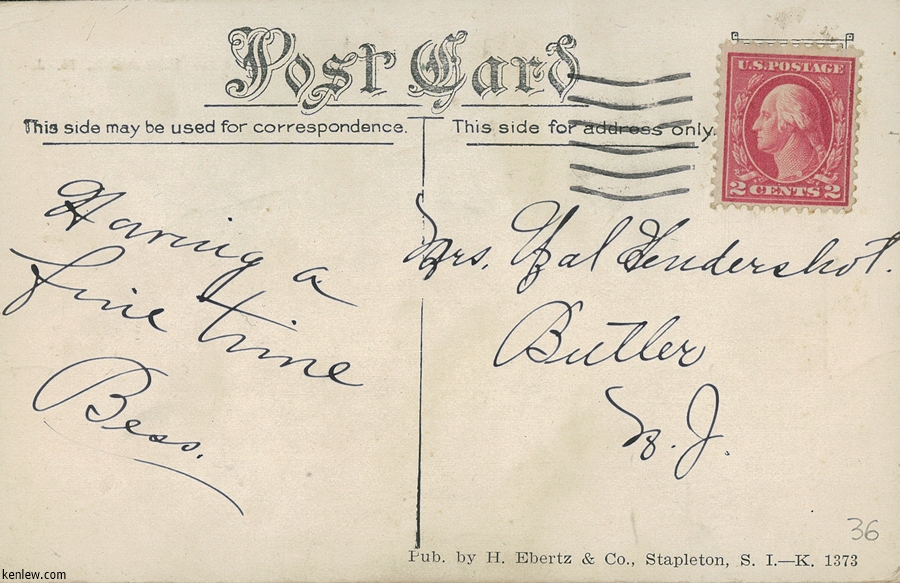 Post Card
This side may be used for correspondence.
This side for address only.
U.S. POSTAGE
2 CENTS 2
Having a
fine time
Bess.
Mrs. Hal Hendershot.
Butler
N. J.
36
Pub. by H. Ebertz & Co., Stapleton, S. I.—K. 1373
kenlew.com